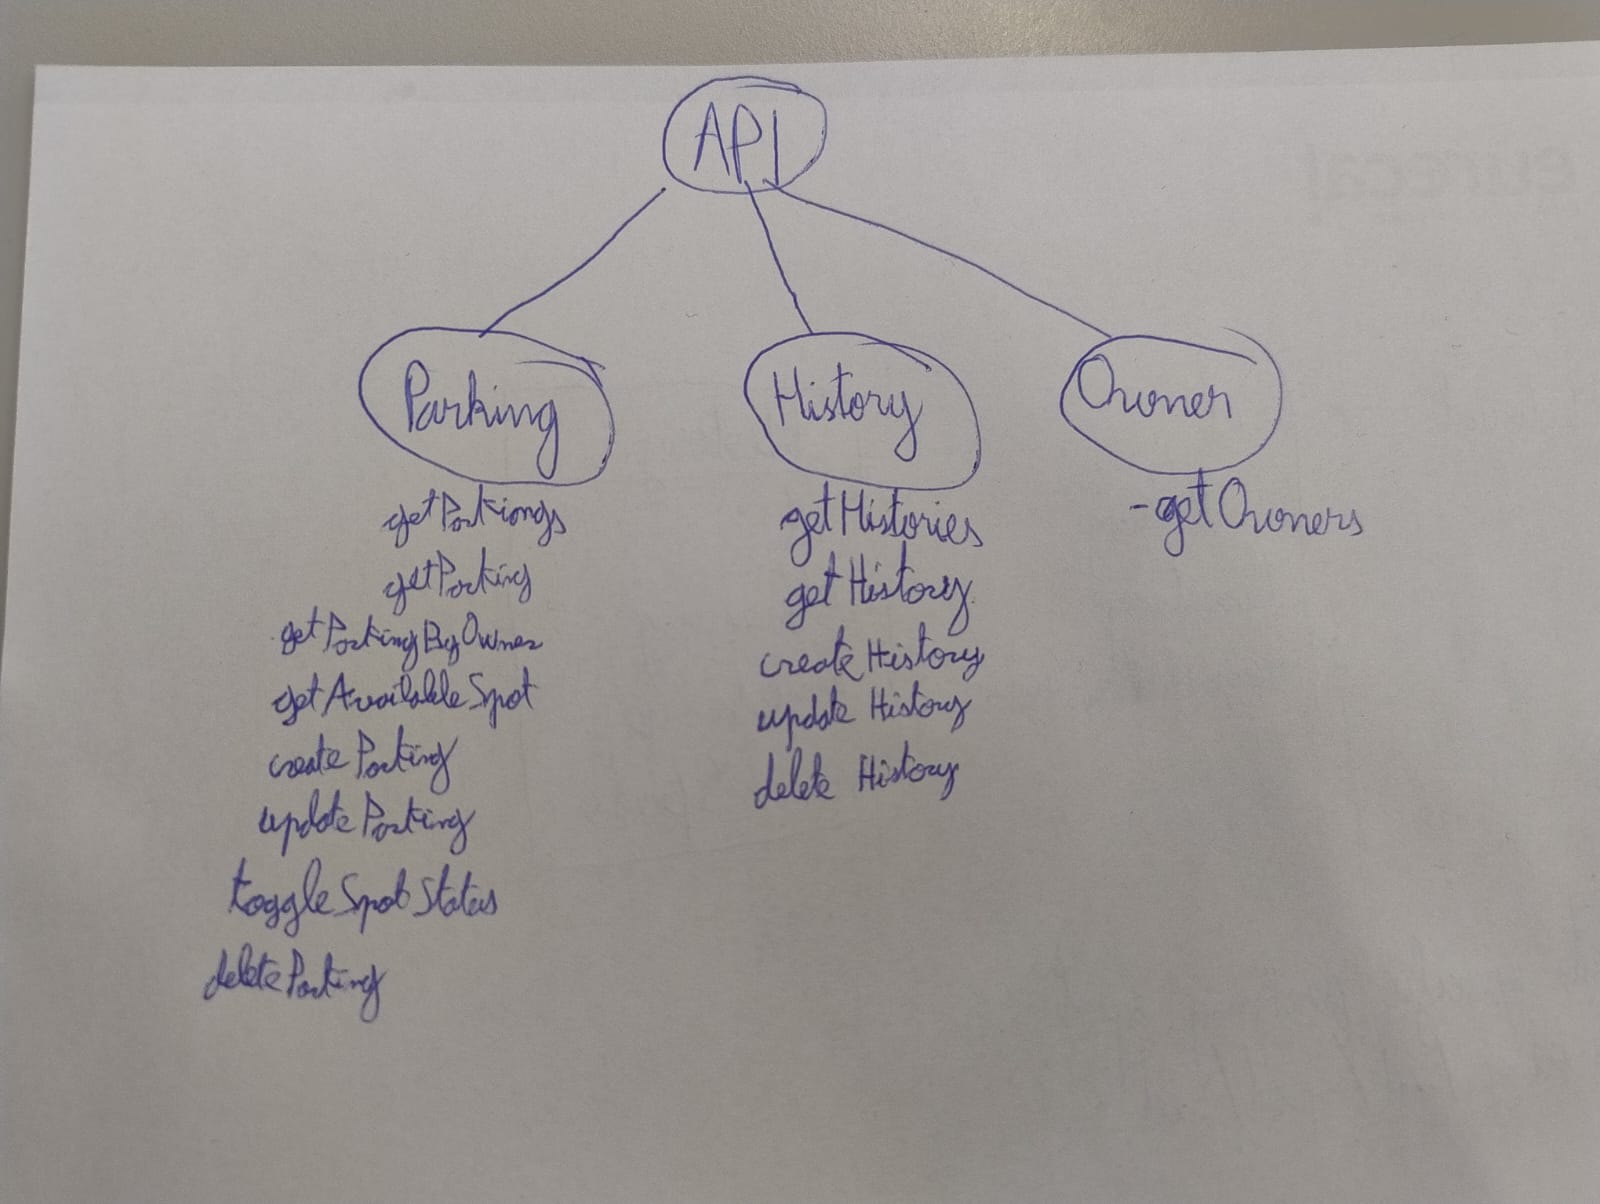 API
Parking
History
Owner
getParkiongs
getParking
getParkingByOwner
getAvailableSpot
create Parking
update Parking
toggle Spot Status
delete Parking
getHistories
get History
create History
update History
delete History
-getOwners